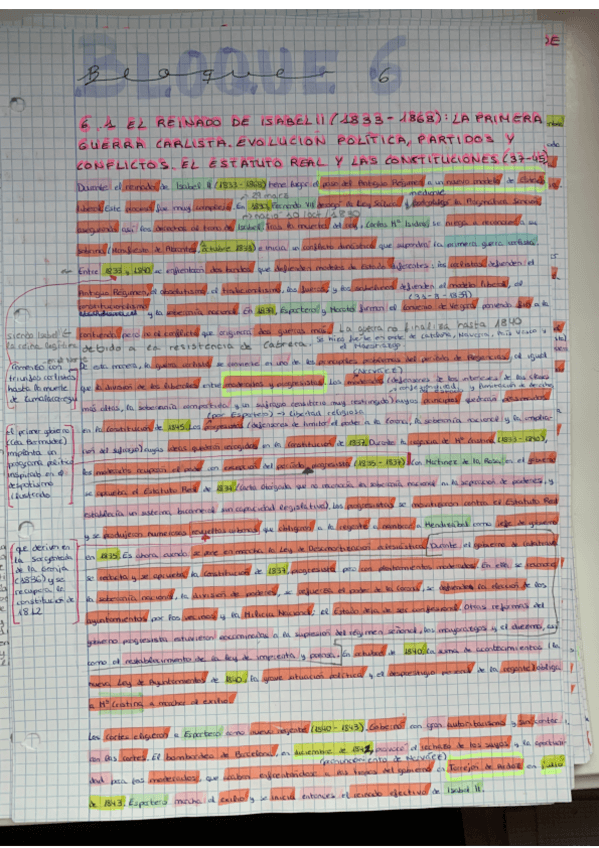 2E
BLOQUE 6
Bloque 6
6.1 EL REINADO DE ISABEL II (1833-1868): LA PRIMERA
GUERRA CARLISTA. EVOLUCIÓN POLÍTICA, PARTIDOS Y
CONFLICTOS. EL ESTATUTO REAL Y LAS CONSTITUCIONES (37-45)
Durante el reinado de Isabel II (1833-1868) tiene lugar el paso del Antiguo Régimen a un nuevo modelo de
liberal. Este proceso fue muy complejo. En
sucesión así los derechos al trono de Isabel. Tras la muerte del rey, Carlos Mª Isidro se niega a reconocer a su
sobrina (Manifiesto de Abrantes, octubre 1833) e inicia un conflicto dinástico que supondrá la primera guerra carlista.
Entre 1833 y 1840 se enfrentan dos bandos que defienden modelos de Estado diferentes: los carlistas defienden el
Antiguo Régimen, el absolutismo, el tradicionalismo, los fueros y los isabelinos defienden el modelo liberal, el
constitucionalismo y la soberanía nacional. En 1839, Espartero y Maroto firman el Convenio de Vergara poniendo fin a la
contienda pero no al conflicto que originará dos guerras más. La guerra no finaliza hasta 1840
debido a la resistencia de Cabrera.
De esta manera, la guerra carlista se convierte en uno de los principales problemas del período de Regencias, al igual
que la división de los liberales entre moderados y progresistas. Los moderados (defensores de los intereses de las clases
(NARVÁEZ)
más altas, la soberanía compartida y un sufragio censitario muy restringido) cuyos principios quedarán
(por Espartero) → libertad religiosa
en la constitución de 1845. Los progresistas (defensores de limitar el poder a la Corona, la soberanía nacional y la amplia-
ción del sufragio) cuyas ideas quedarán recogidas en la constitución de 1837. Durante la regencia de Mª Cristina (1833-1840),
los moderados ocuparon el poder con excepción del período progresista (1835-1837). Con Martínez de la Rosa en el gobierno
se aprueba el Estatuto Real de 1834 (carta otorgada que no reconocía la soberanía nacional ni la separación de poderes, y
establecía un sistema bicameral sin capacidad legislativa). Los progresistas se movilizaron contra el Estatuto Real
y se produjeron numerosas revueltas urbanas que obligaron a la regente a nombrar a Mendizábal como jefe de gobierno
en 1835. Es ahora cuando se pone en marcha la Ley de Desamortización eclesiástica. Durante el gobierno de Calatrava
se redacta y se aprueba la constitución de 1837, progresista pero con planteamientos moderados. En ella se reconoce
la soberanía nacional, la división de poderes, se refuerza el poder de la Corona, se defiende la elección de los
ayuntamientos por los vecinos y la Milicia Nacional. el Estado deja de ser confesional. Otras reformas del
gobierno progresista estuvieron encaminadas a la supresión del régimen señorial, los mayorazgos y el diezmo, así
como el restablecimiento de la ley de imprenta y prensa. En octubre de 1840, la suma de acontecimientos (la
nueva Ley de Ayuntamientos de 1840, la grave situación política y el desprestigio personal de la regente) obliga
a Mª Cristina a marchar al exilio.
Las Cortes eligieron a Espartero como nuevo regente (1840-1843). Gobernó con gran autoritarismo y sin contar
con las Cortes. El bombardeo de Barcelona, en diciembre de 1842, provocó el rechazo de los suyos y la oportuni-
(pronunciamiento de NARVÁEZ)
dad para los moderados, que acaban enfrentándose a las tropas del gobierno en Torrejón de Ardoz en julio
de 1843. Espartero marcha al exilio y se inicia entonces el reinado efectivo de Isabel II.
siendo Isabel
reina legítima
comenzó con
triunfos carlistas
hasta la muerte
de Zumalacárregui
El primer gobierno
(Cea Bermúdez)
implanta un
programa político
inspirado en el
despotismo
ilustrado
que derivan en
la Sargentada
de la Granja
(1836) y se
recupera la
constitución de
1812